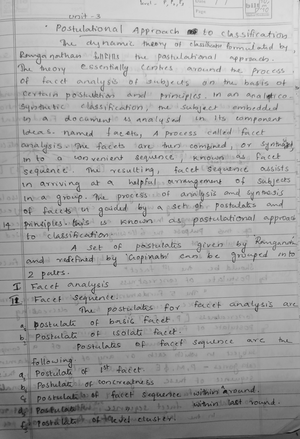 Unit - 3
• Postulational Approach to classification
The dynamic theory of classification formulated by
Ranganathan the postulational approach.
The theory essentially centres around the process
of facet analysis of subjects on the basis of
certain postulation and principles. In an analytico
synthetic classification, the subject embedded
in a document is analysed in its component
ideas. named facets, a process called facet
analysis. The facets are then combined, or
in to a convenient sequence, known as facet
sequence. The resulting, facet sequence assists
in arriving at a helpful arrangement of subjects
in a group. The process of analysis and synthesis
of facets is guided by a set of postulates and
principles. this is known as postulational approach
to classification.
A set of postulates given by
and redefined by Gopinath can be grouped into
2 parts.
I Facet analysis
II Facet sequence.
The postulates for facet analysis are
a, postulate of basic facet
b, Postulate of isolate facet.
Postulates of facet sequence are the
following.
a, Postulate of 1st facet.
b, Postulate of concreteness
c, postulate of facet sequence within around.
d, Postulate within last round.
Postulate of level cluster.